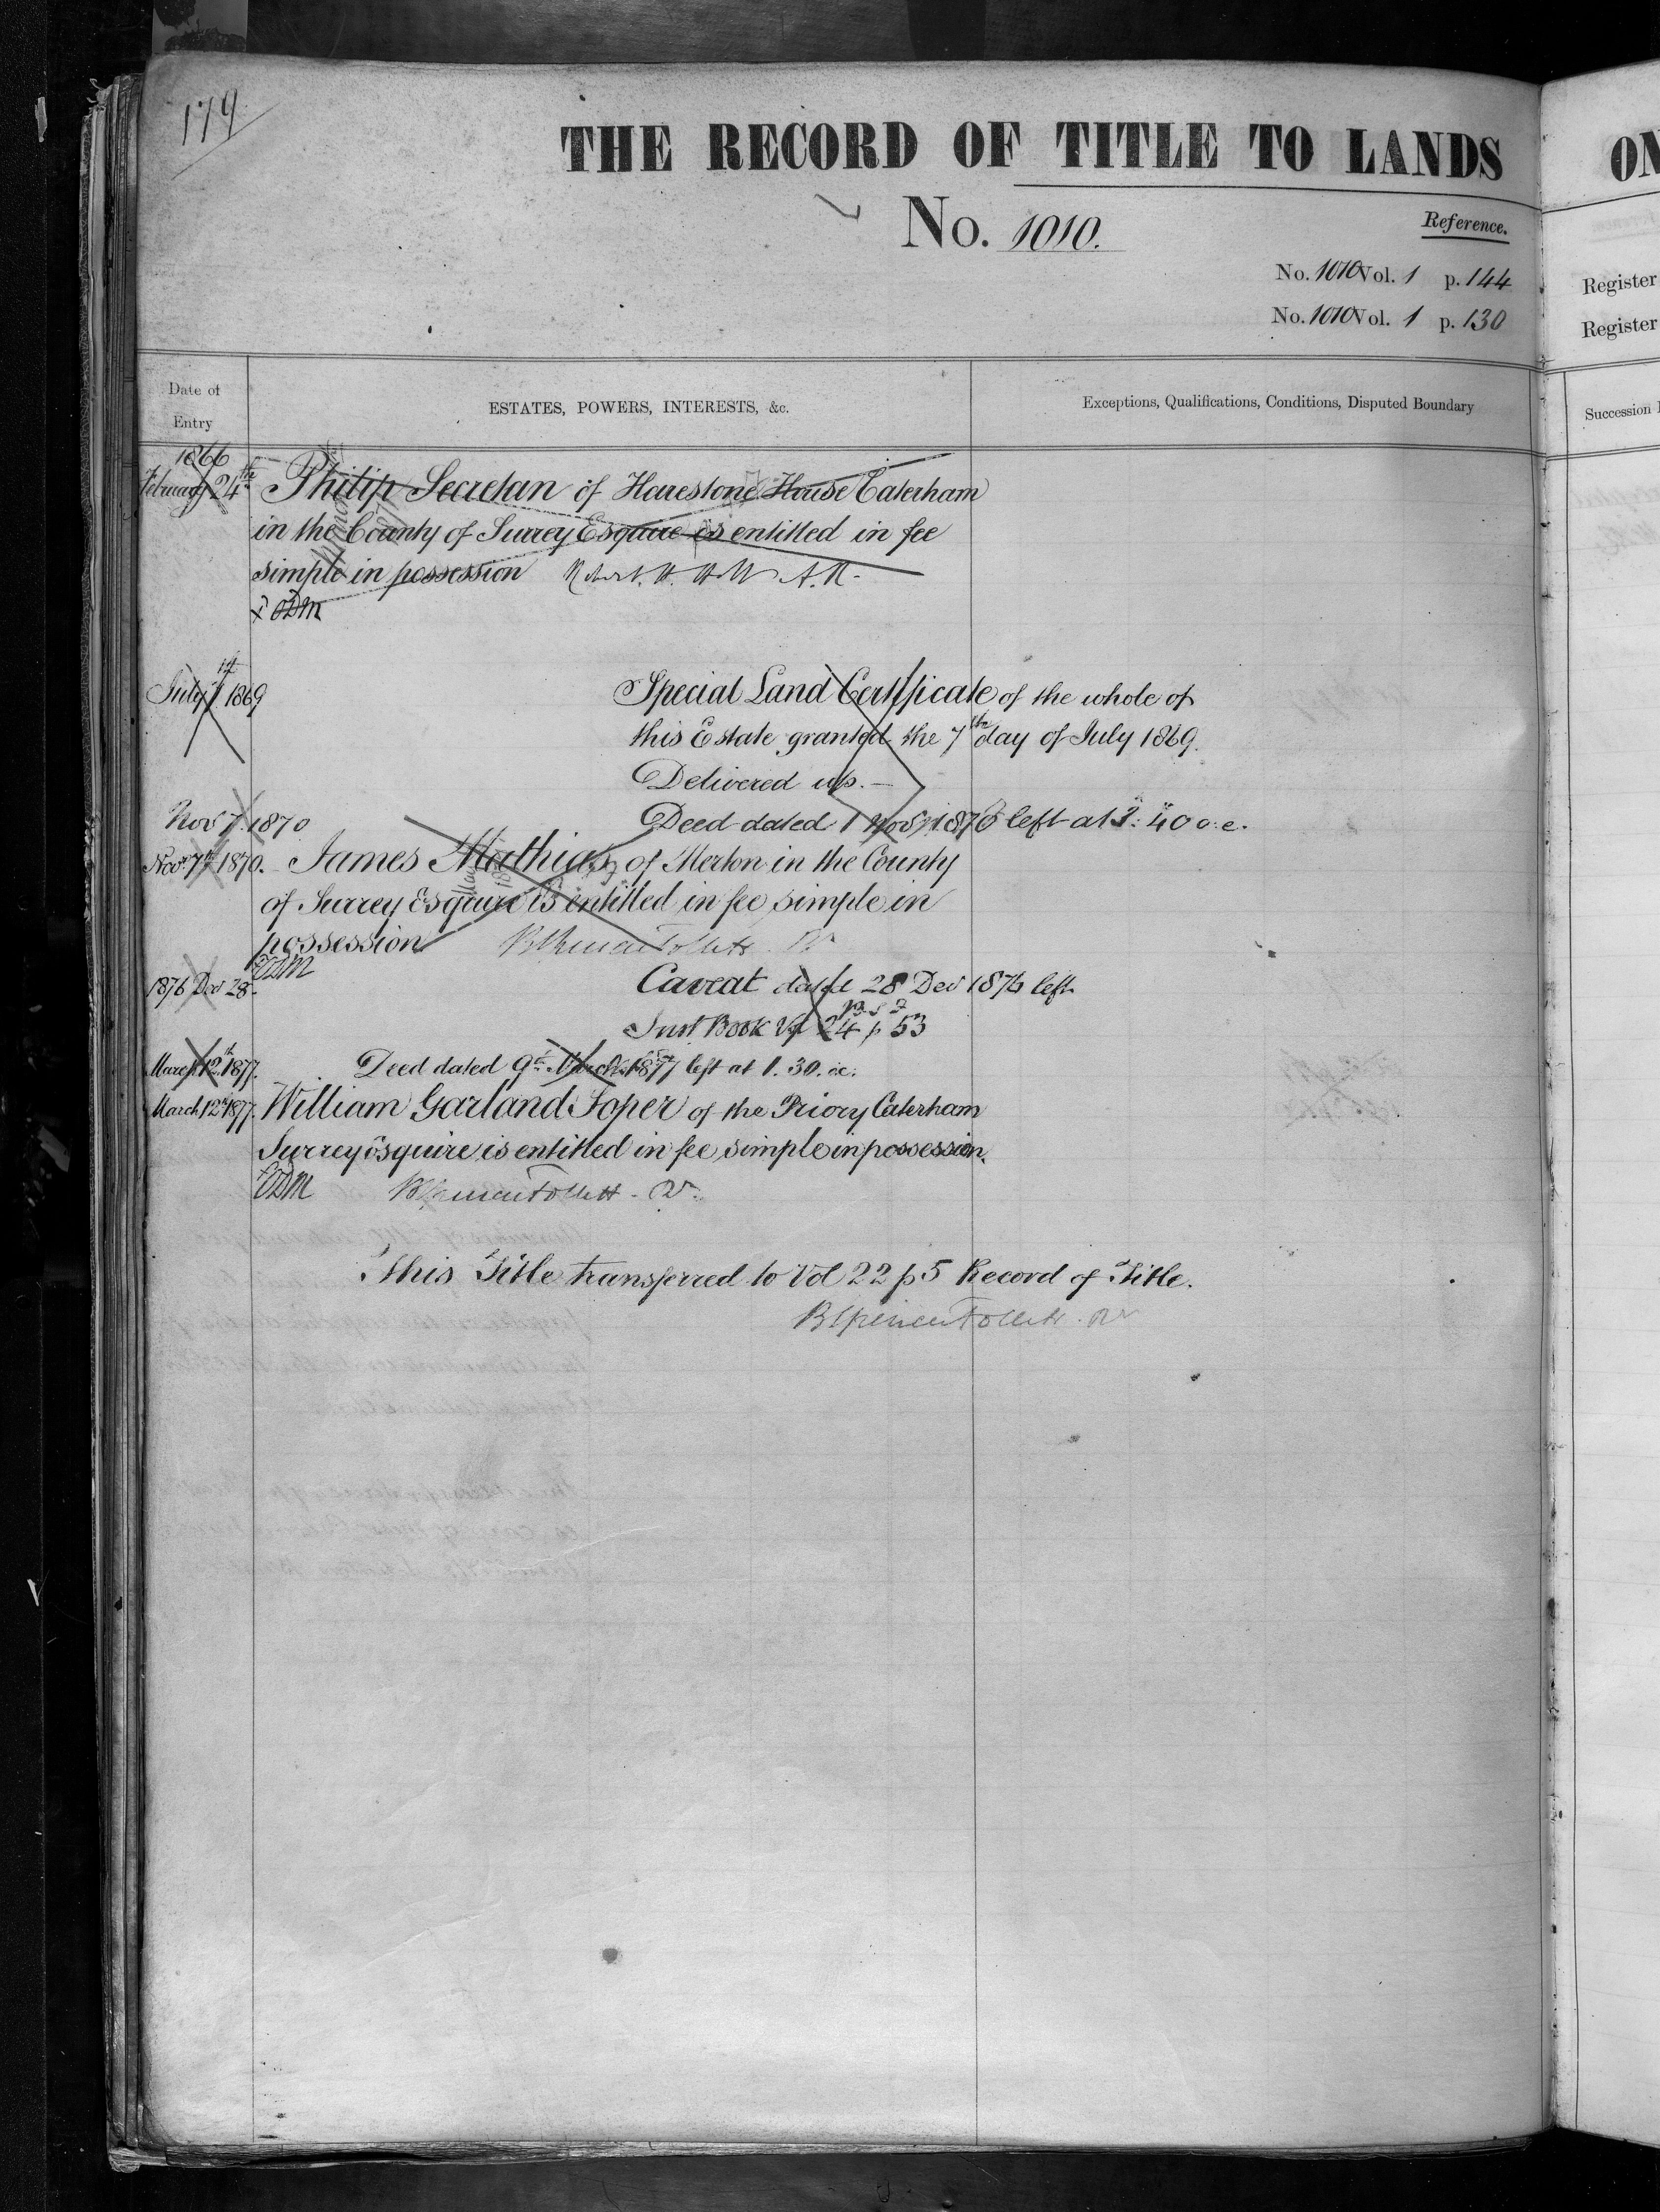 179
THE RECORD OF TITLE TO LANDS
No. 1010.
Reference.
No. 1010 Vol. 1 p. 144
No. 1010 Vol. 1 p. 130
Date of Entry
ESTATES, POWERS, INTERESTS, &c.
Exceptions, Qualifications, Conditions, Disputed Boundary
1866
February 24th Philip Secretan of Harestone House Caterham
in the County of Surrey Esquire is entitled in fee
simple in possession
July 1869 Special Land Certificate of the whole of
this Estate granted the 7th day of July 1869.
Delivered up.
Nov 7. 1870 Deed dated 1 Novr 1870 left at 3:40 o.c.
Novr 7th 1870. James Mathias of Merton in the County
of Surrey Esquire is entitled in fee simple in
possession
1876 Dec 28. Caveat dated 28 Dec 1876 left
Inst. Book Vol 24 p 53
March 12th 1877. Deed dated 9th March 1877 left at 1.30. o.c.
March 12th 1877. William Garland Soper of the Priory Caterham
Surrey Esquire is entitled in fee simple in possession.
This Title transferred to Vol 22 p 5 Record of Title.
ON
Register
Register
Succession